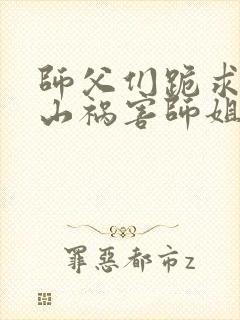 師父们跪求
山祸害師姐
罪惡都市z